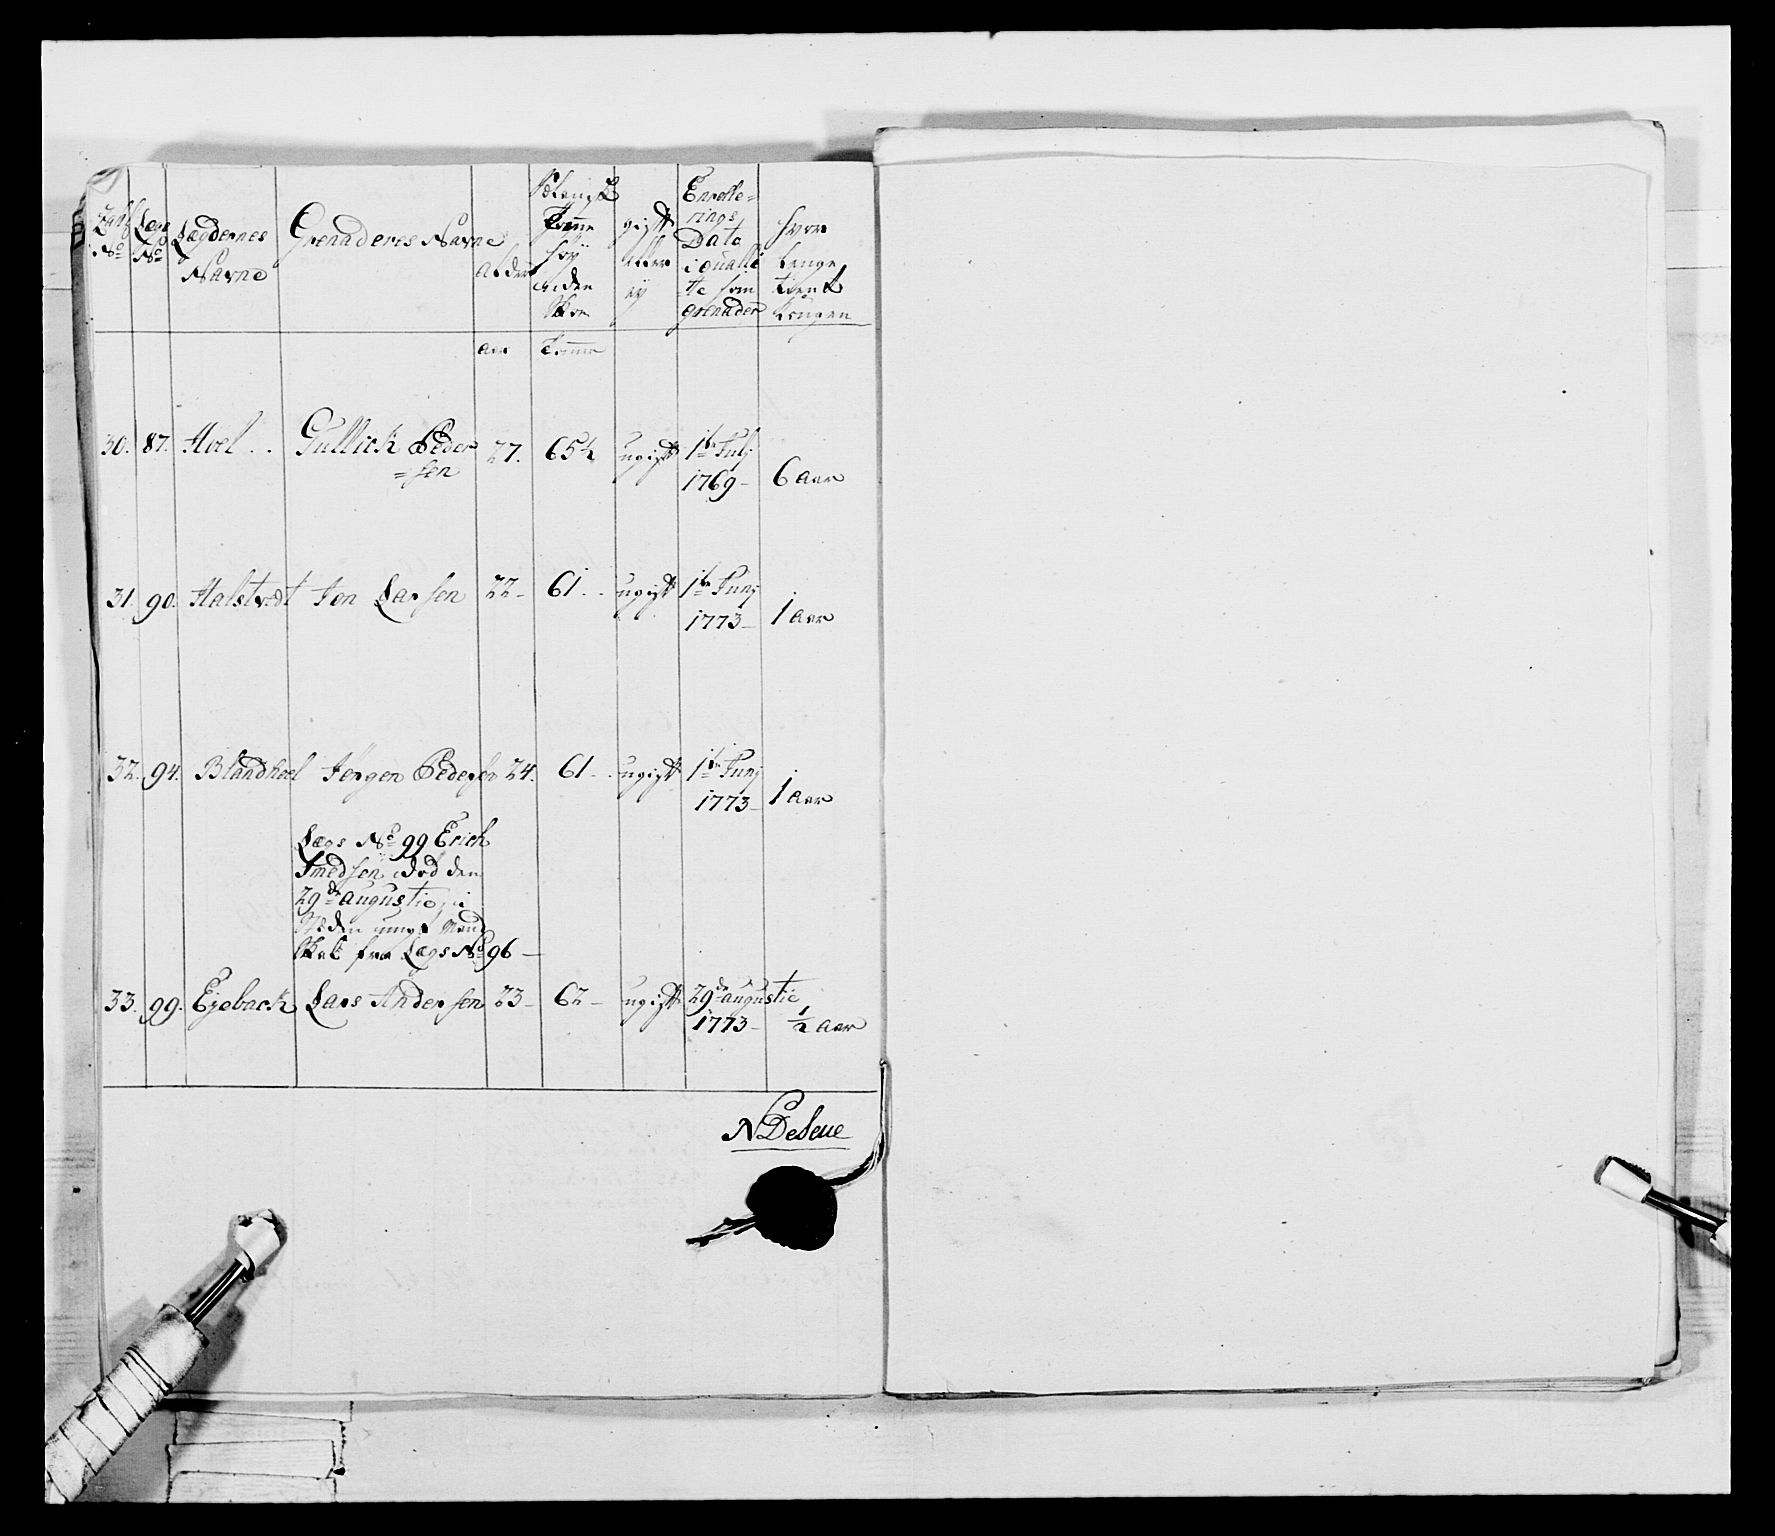 Lægs No Lægdernes Navne
Grenaderes Navne
alder
Tomme höy uden Skoe
gift eller ey
Enrolle=
rings
Dato
i qualite
te som
grenader
hvor
lenge
tient
kongen
aar Tomme
30. 87. Hoel . . Gullick Peder 27. 65½ ugift 1te Julj
=sen
1769 - 6 aar
31. 90. Halstvedt Jon Larsen 22 - 61 . . ugift 1te Junj
1773 - 1 aar
32. 94. Blandhoel Jörgen Pedersen 24. 61 - . ugift 1te Junj
1773 - 1 aar
Lægs No 99 Erich
Smedsen död den
29de augustio, i
Steden unge Mand
Skab fra Lægs No 96 -
33. 99. Ejeback Lars Andersen 23 - 62 - ugift 29de augustie
1773 - ½ aar
NDeSeue